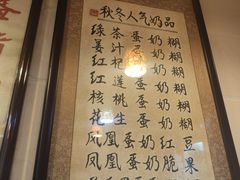 秋冬人气奶品
茶蛋奶糊
姜汁蛋奶糊
红杞蛋奶糊
红莲蛋奶糊
核桃蛋奶糊
花生蛋奶糊
凤凰蛋奶红豆
凤凰蛋奶脆果